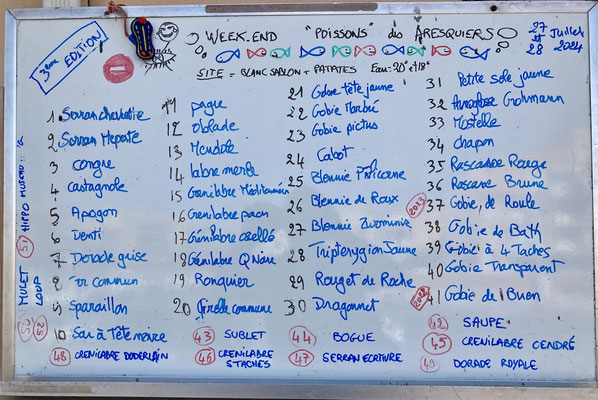 3ème EDITION
WEEK.END "POISSONS" des ARESQUIERS
27 et 28 Juillet 2024
SITE = BLANC SABLON = PATATES Eau = 20° à 18°
1 Serran chevrette
2 Serran Hepate
3 Congre
4 Castagnole
5 Apogon
6 Denti
7 Dorade grise
8 Sar commun
9 Sparaillon
10 Sar à Tête noire
11 pagre
12 oblade
13 Mendole
14 labre merle
15 Crenilabre Méditerranéen
16 Crénilabre paon
17 Crénilabre ocellé
18 Crénilabre Q Noire
19 Ronquier
20 Girelle commune
21 Gobie tête jaune
22 Gobie Marbré
23 Gobie pictus
24 Cabot
25 Blennie Pilicorne
26 Blennie de Roux
27 Blennie Zvonimir
28 Tripterygion Jaune
29 Rouget de Roche
30 Dragonnet
31 Petite sole jaune
32 Arnoglosse Grohmann
33 Mostelle
34 chapon
35 Rascasse Rouge
36 Rascasse Brune
37 Gobie de Roule
38 Gobie de Bath
39 Gobie à 4 Taches
40 Gobie Transparent
41 Gobie de Buen
2023
2022
42 SAUPE
43 SUBLET
44 BOGUE
45 CRENILABRE CENDRÉ
46 CRENILABRE 5 TACHES
47 SERRAN ECRITURE
48 CRENILABRE DODERLEIN
49 DORADE ROYALE
MULET
LOUP
51 HIPPO